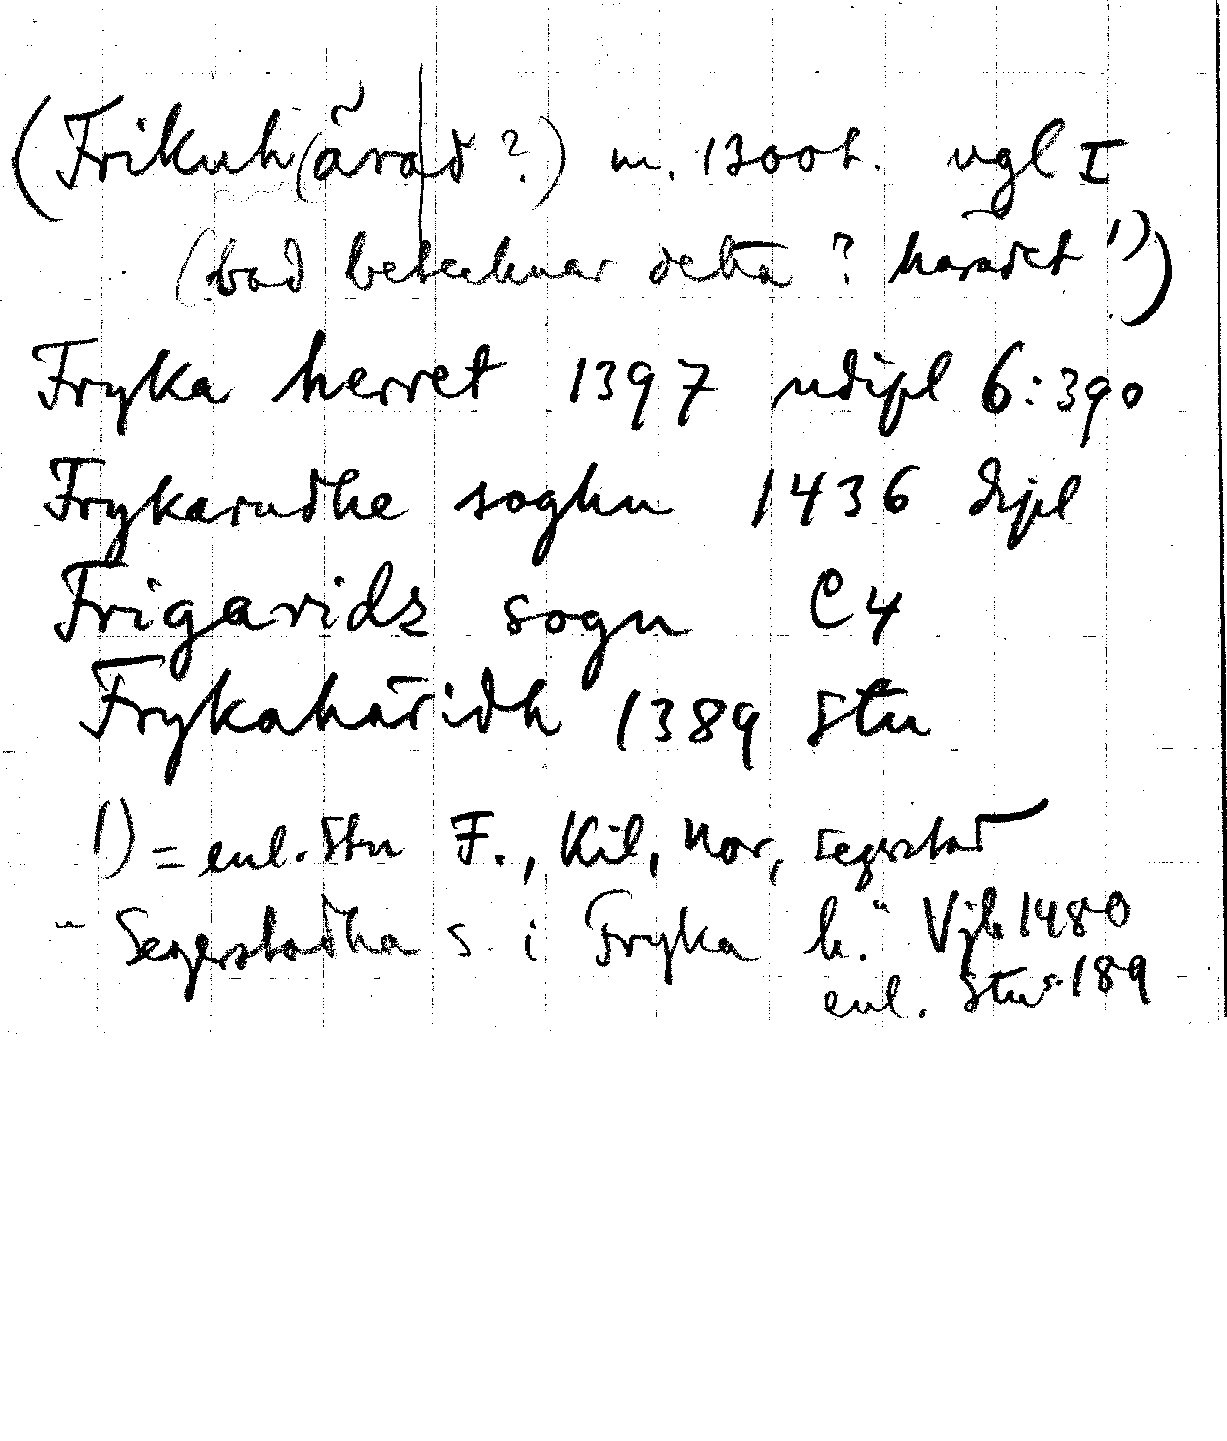 (Frikuh(ärad ?) m. 1300 t. vgl I
(vad betecknar detta ? häradet 1))
Fryka herret 1397 ndipl 6:390
Frykarudhe soghn 1436 dipl
Frigaridz sogn C4
Frykahäridh 1389 Stu
1) = enl. Stu F., Kil, Nor, Segerstad
"Segerstadha s i Fryka h." Vjb 1480
enl. Stu s. 189